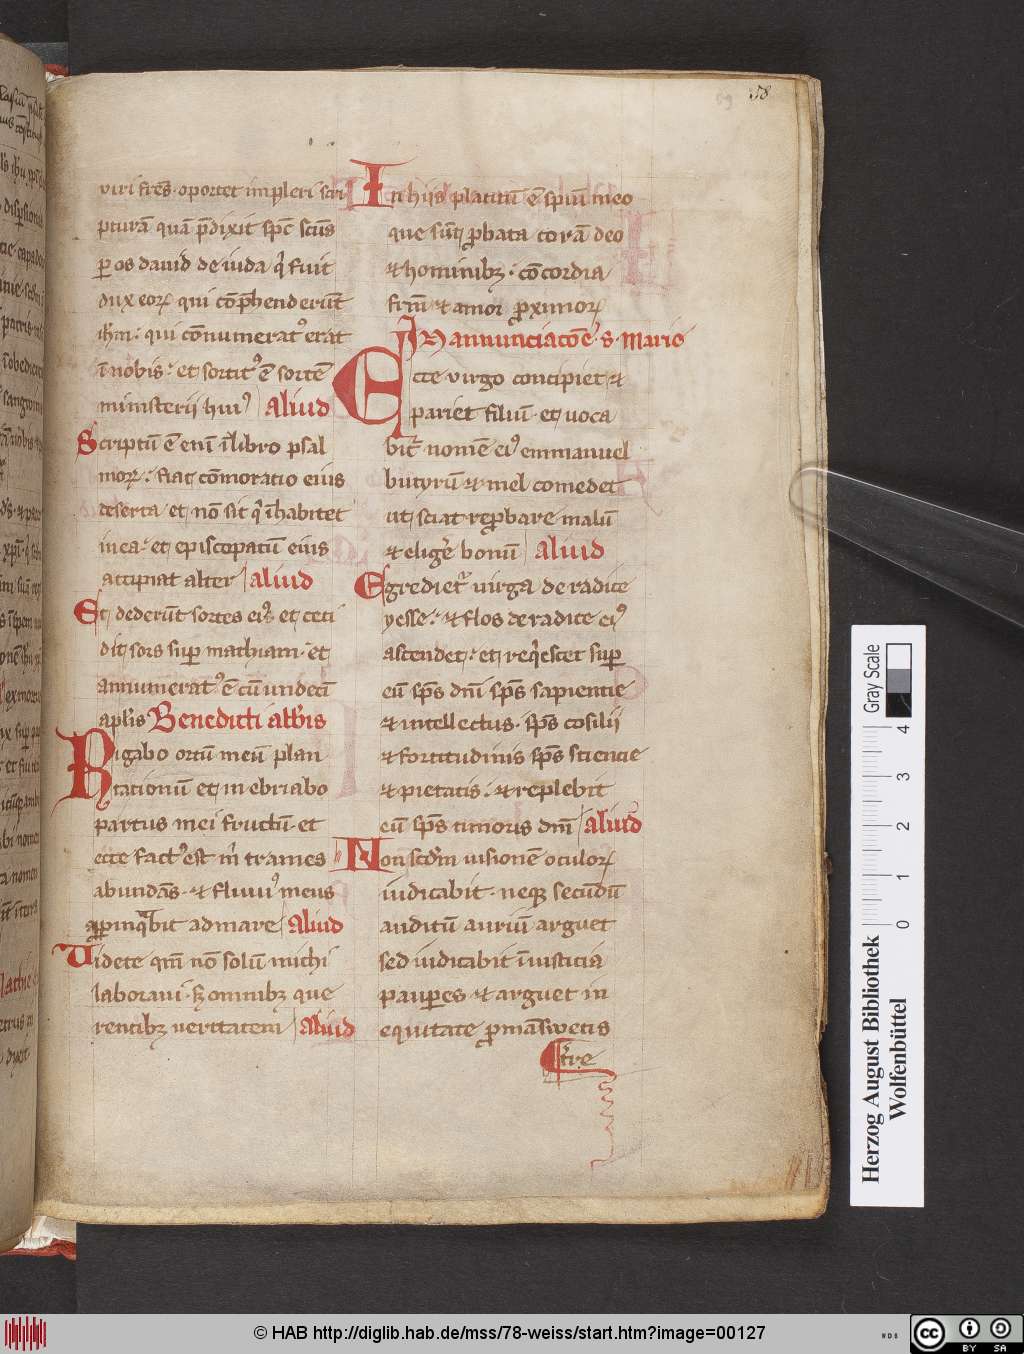 58
viri fr̄es · oportet impleri scri
pturā quā p̄dixit sp̄c sc̄us
ꝑ os dauid de iuda q̇ fuit
dux eoꝝ qui cōp̄henderūt
ih̄m : qui cōnumeratꝰ erat
ī nobis : et sortitꝰ ē sortē
ministerii huiꝰ Aliud
Scriptū ē eni ī libro psal
moꝝ : fiat cōmoratio eius
deserta et nō sit q̇ īhabitet
in ea · et episcopatū eius
accipiat alter Aliud
Et dederūt sortes eiꝰ et ceci
dit sors suꝑ mathiam · et
annumeratꝰ ē cū undeci
apl̄is Benedicti abb̄is
Rigabo ortū meū plan
tationū et inebriabo
partus mei fructū · et
ecce factꝰ est m̄ trames
abundās · et fluuiꝰ meus
appinq̇bit ad mare Aliud
Uidete qm̄ nō solū michi
laboraui · sꝫ omnibꝫ que
rentibꝫ ueritatem Aliud
In hiis placitū ē spiūi meo
que sūt ꝓbata corā deo
et hominibꝫ · cōcordia
fr̄m et amor ꝓximoꝝ
In annunciacōe · s · Marie
Ecce virgo concipiet et
pariet filiū · et uoca
bit̄ nomē eiꝰ emmanuel
butyrū et mel comedet
ut sciat reꝓbare malū
et eliḡe bonū Aliud
Egrediet̄ uirga de radice
yesse : et flos de radice eiꝰ
ascendet : et req̇escet suꝑ
eū sp̄s dn̄i sp̄s sapientie
et intellectus · sp̄s cōsilii
et fortitudinis sp̄s scientie
et pietatis : et replebit
eū sp̄s timoris dn̄i Aliud
Non scd̄m uisionē oculoꝝ
iudicabit · neqꝫ secūdū
auditū auriū arguet
sed iudicabit ī iusticia
pauꝑes et arguet in
equitate ꝓ māswetis
t̄re
Gray Scale
0 1 2 3 4
Herzog August Bibliothek
Wolfenbüttel
© HAB http://diglib.hab.de/mss/78-weiss/start.htm?image=00127
WDB
cc BY SA